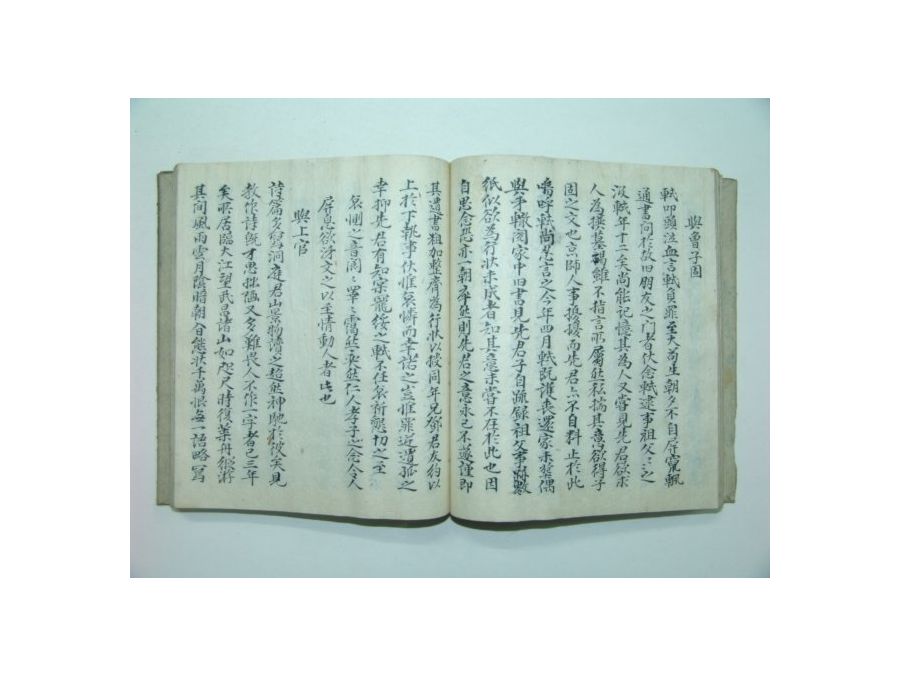 與曾子固
軾叩頭泣血言軾負罪至大苟生朝夕不自屏竄輒
通書問於故旧朋友之門者伏念軾逮事祖父々之
沒軾年十二矣尚能記憶其為人又嘗見先君欲求
人為撰墓碣雖不指言所屬然私揣其意欲得子
固之文也京師人事擾擾而先君亦不自料止於此
嗚呼軾尚忍言之今年四月軾既護喪還家未葬偶
與弟轍閱家中旧書見先君子自疏錄祖父事跡數
紙似欲為行狀未成者知其意未嘗不在於此也因
自思念恐亦一朝卒然則先君之意永已不遂謹即
其遺書粗加整齊為行狀以授同年兄鄧君友約以
上於下執事伏惟哀憐而幸諾之豈惟罪逆遺孤之
幸抑先君有知實寵綏之軾不任哀祈懇切之至
與上官
詩篇多寫洞庭君山景物讀之超然神馳於彼矣見
教作詩既才思拙陋又多難畏人不作一字者已三年
矣所居臨大江望武昌諸山如咫尺時復葉舟縱游
其間風雨雲月陰晴朝夕態狀千萬恨每一語略寫